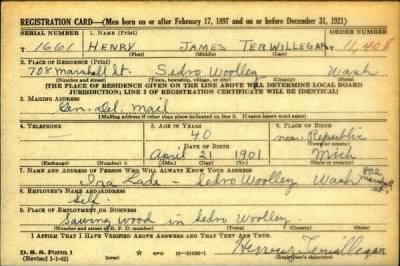 REGISTRATION CARD—(Men born on or after February 17, 1897 and on or before December 31, 1921)
SERIAL NUMBER 1. NAME (Print) ORDER NUMBER
T 1661 HENRY JAMES TERWILLEGAR
(First) (Middle) (Last)
2. PLACE OF RESIDENCE (Print)
708 Marshall St. Sedro Woolley Wash
(Number and street) (Town, township, village, or city) (County) (State)
[THE PLACE OF RESIDENCE GIVEN ON THE LINE ABOVE WILL DETERMINE LOCAL BOARD
JURISDICTION; LINE 2 OF REGISTRATION CERTIFICATE WILL BE IDENTICAL]
3. MAILING ADDRESS
Gen. Del. Mail
[Mailing address if other than place indicated on line 2. If same insert word same]
4. TELEPHONE 5. AGE IN YEARS 6. PLACE OF BIRTH
40 near Republic
DATE OF BIRTH
April 21 1901 Mich
(Exchange) (Number) (Mo.) (Day) (Yr.) (State or country)
7. NAME AND ADDRESS OF PERSON WHO WILL ALWAYS KNOW YOUR ADDRESS
802
Ira Sedro Woolley Wash
8. EMPLOYER'S NAME AND ADDRESS
Self.
9. PLACE OF EMPLOYMENT OR BUSINESS
Sawing wood in Sedro Woolley.
(Number and street or R. F. D. number) (Town) (County) (State)
I AFFIRM THAT I HAVE VERIFIED ABOVE ANSWERS AND THAT THEY ARE TRUE.
D. S. S. Form 1
(Revised 1-1-42) (over) GPO 16—21630-1 Henry Terwillegar
(Registrant's signature)